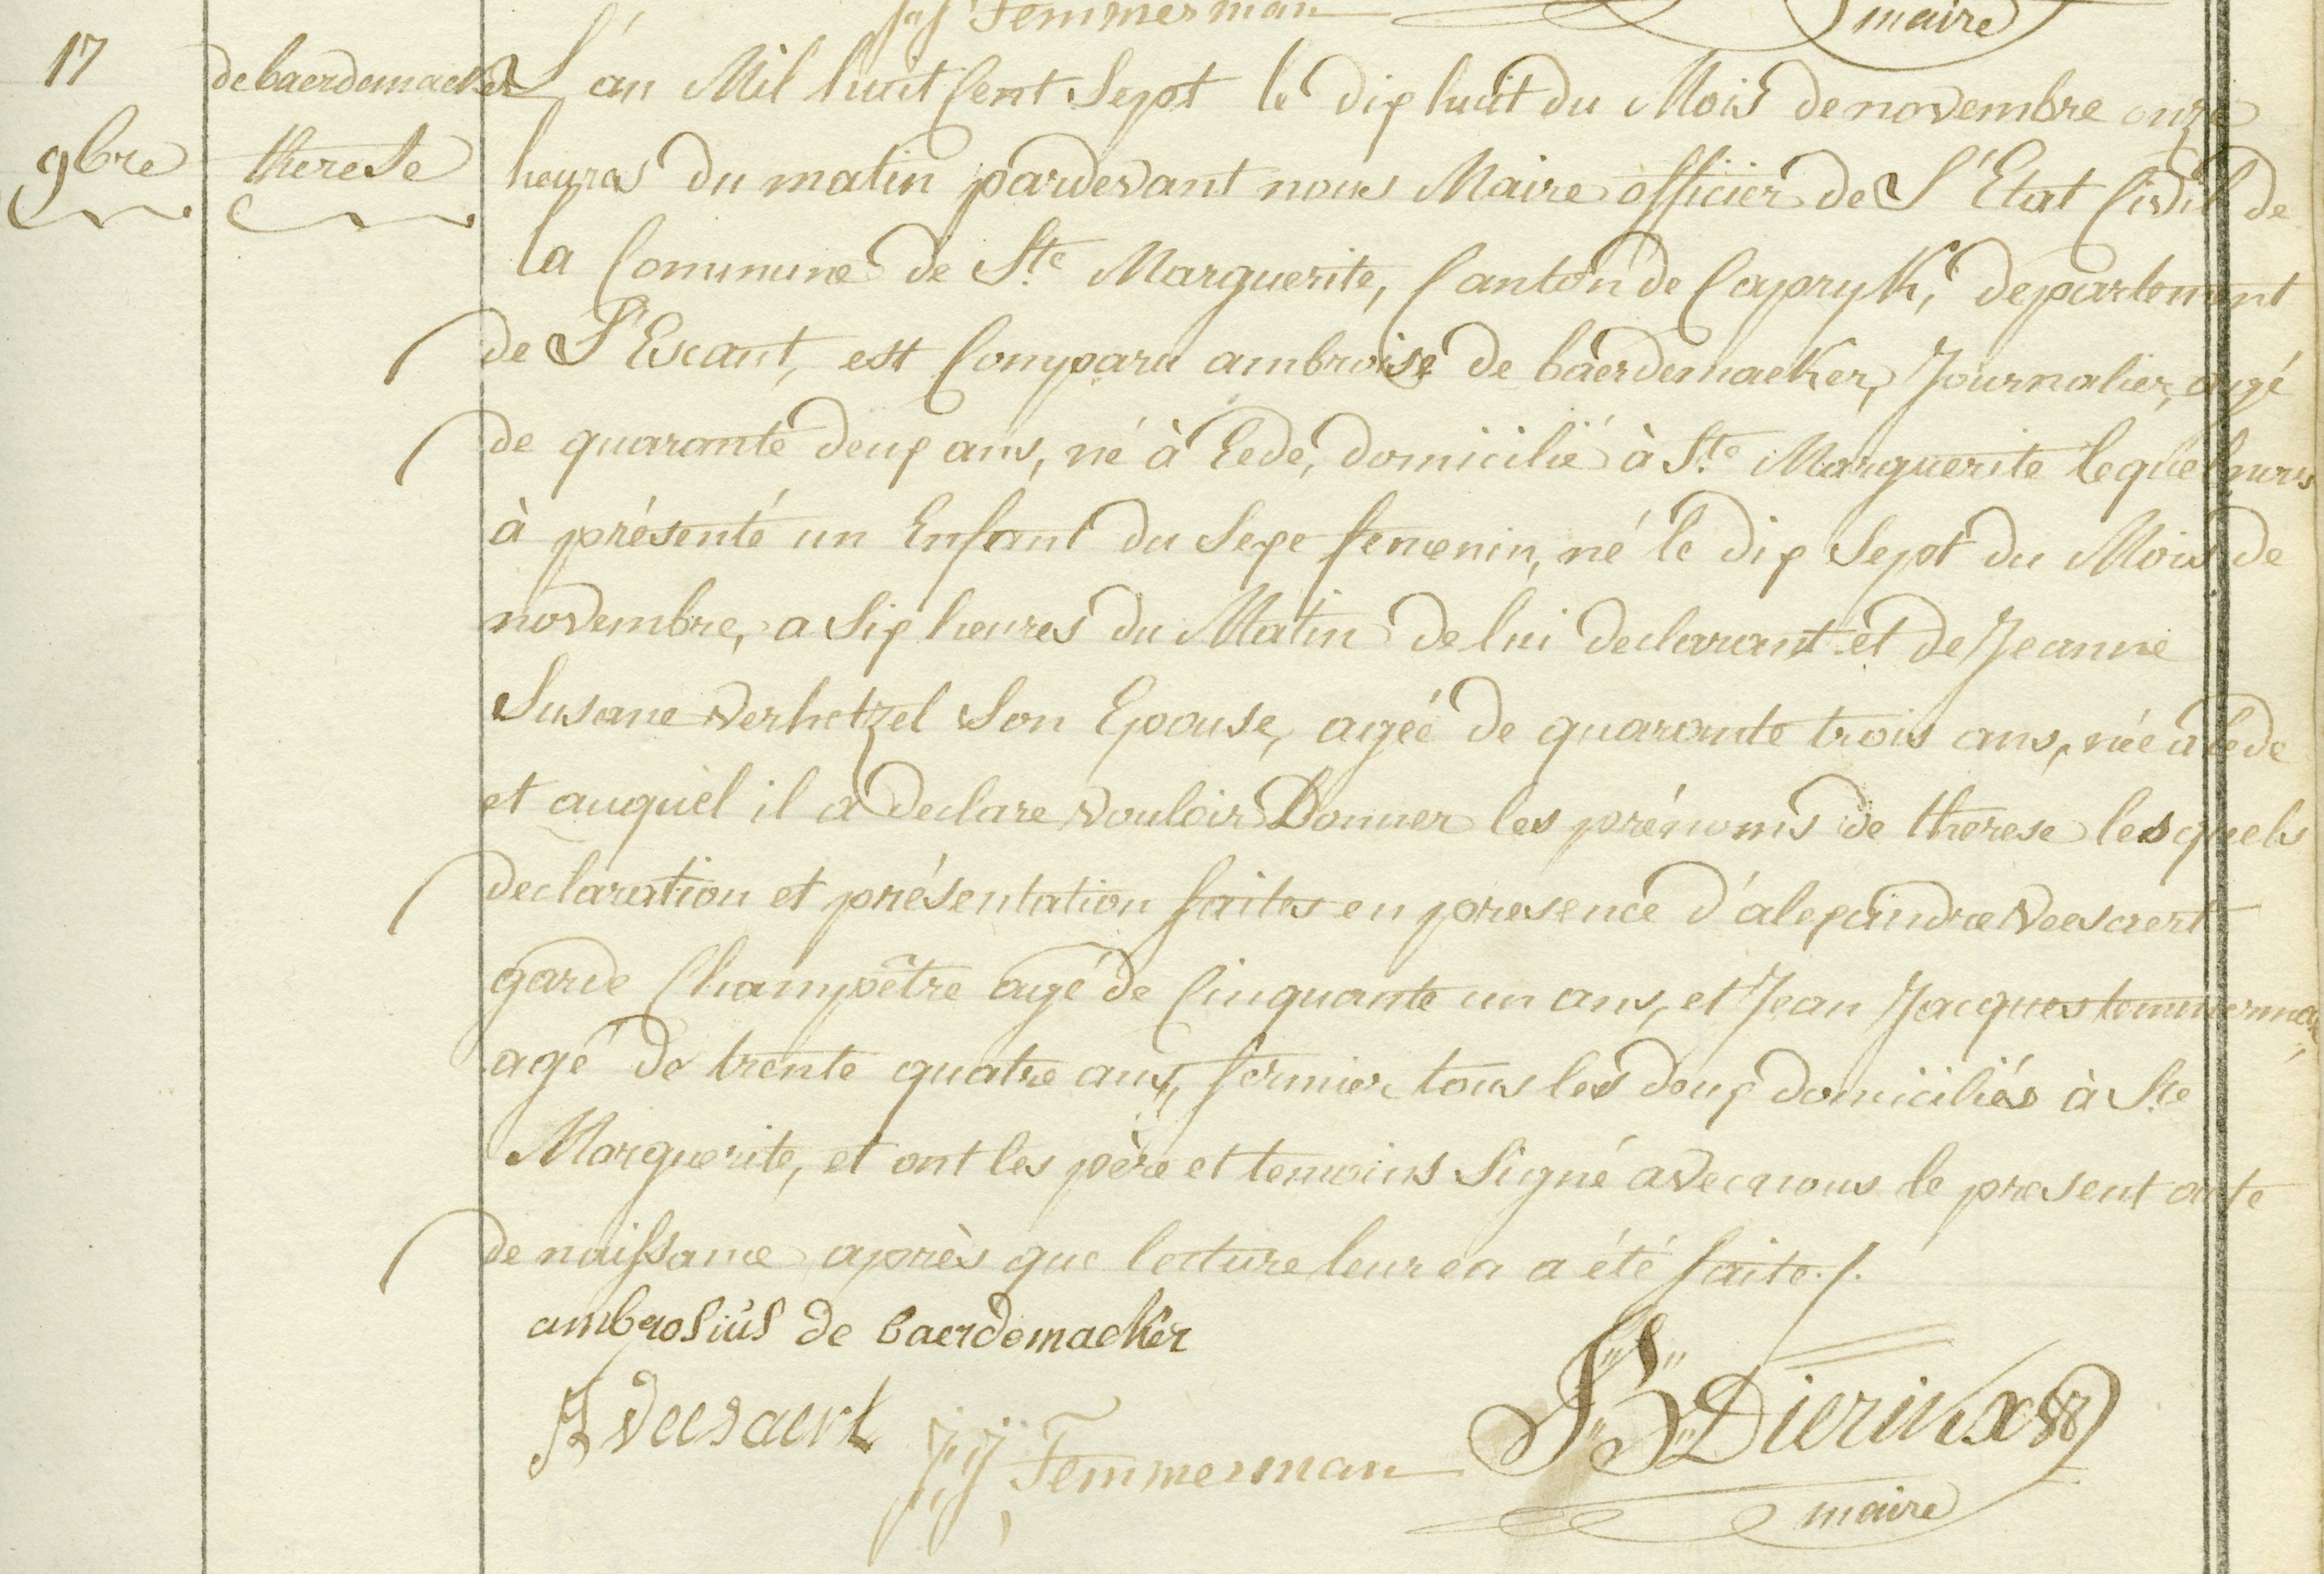 JJ Temmerman maire
17
9bre
debaerdemaeker
therese
L'an Mil huit Cent Sept le dix huit du Mois de novembre onze
heures du matin pardevant nous Maire officier de L'Etat Civil de
la Commune de Ste Marguerite, Canton de Capryk, departement
de L'Escaut, est Comparu ambroise de baerdemaeker, Journalier, agé
de quarante deux ans, né à Eede, domicilié à Ste Marguerite lequel nous
à présenté un Enfant du Sexe femenin, né le dix Sept du Mois de
novembre, a Six heures du Matin de lui declarant et de Jeanne
Susane verhetzel Son Epouse, ageé de quarante trois ans, née a Eede
et auquel il a declare vouloir Donner les prénoms de therese lesquels
declaration et présentation faites en presence d'alexandre Veesaert
garde Champêtre agé de Cinquante un ans, et Jean Jacques temmerman
agé de trente quatre ans, fermier tous les deux domiciliés à Ste
Marguerite, et ont les père et temoins Signé avec nous le present acte
de naissance après que lecture leur en a été faite./.
ambrosius de baerdemaeker
A veesaert JJ Temmerman
Dierinx
maire